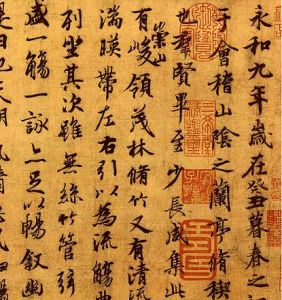 永和九年歲在癸丑暮春之初
于會稽山陰之蘭亭脩禊
也羣賢畢至少長咸集此
有崇山峻領茂林脩竹又有清流
湍暎帶左右引以為流觴曲
列坐其次雖無絲竹管弦
盛一觴一詠亦足以暢敘幽
是日也天朗氣清